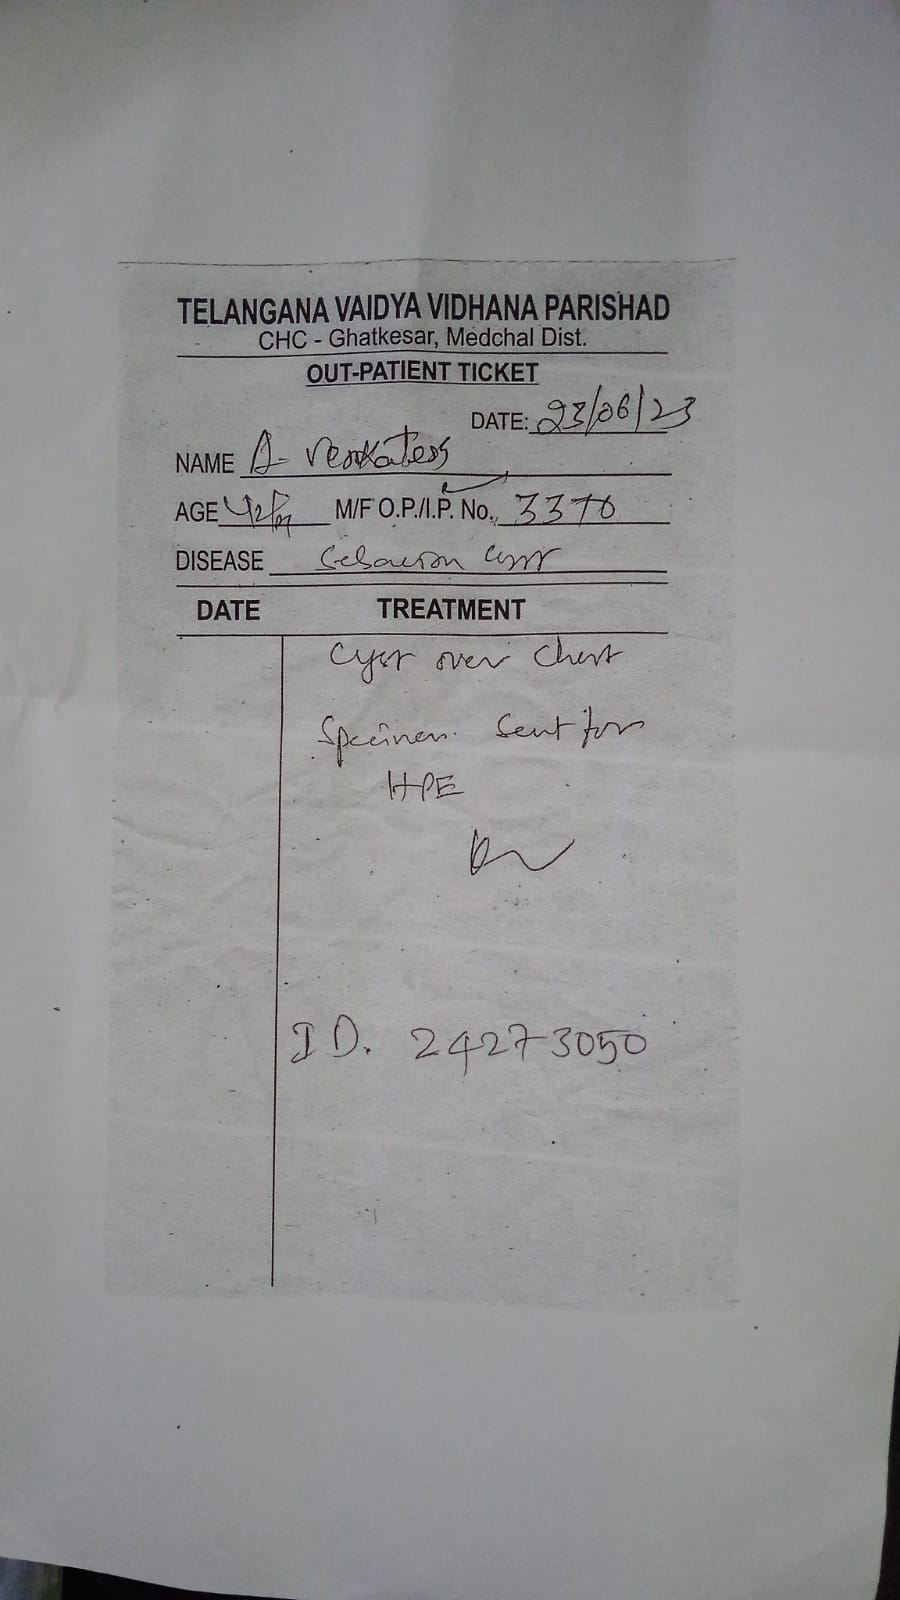 TELANGANA VAIDYA VIDHANA PARISHAD
CHC - Ghatkesar, Medchal Dist.
OUT-PATIENT TICKET
DATE: 23/06/23
NAME A. Venkatesh
AGE 42/M M/F O.P./I.P. No., 3370
DISEASE Sebaceous Cyst
DATE TREATMENT
Cyst over Chest
Specimen Sent for
HPE
ID. 24273050